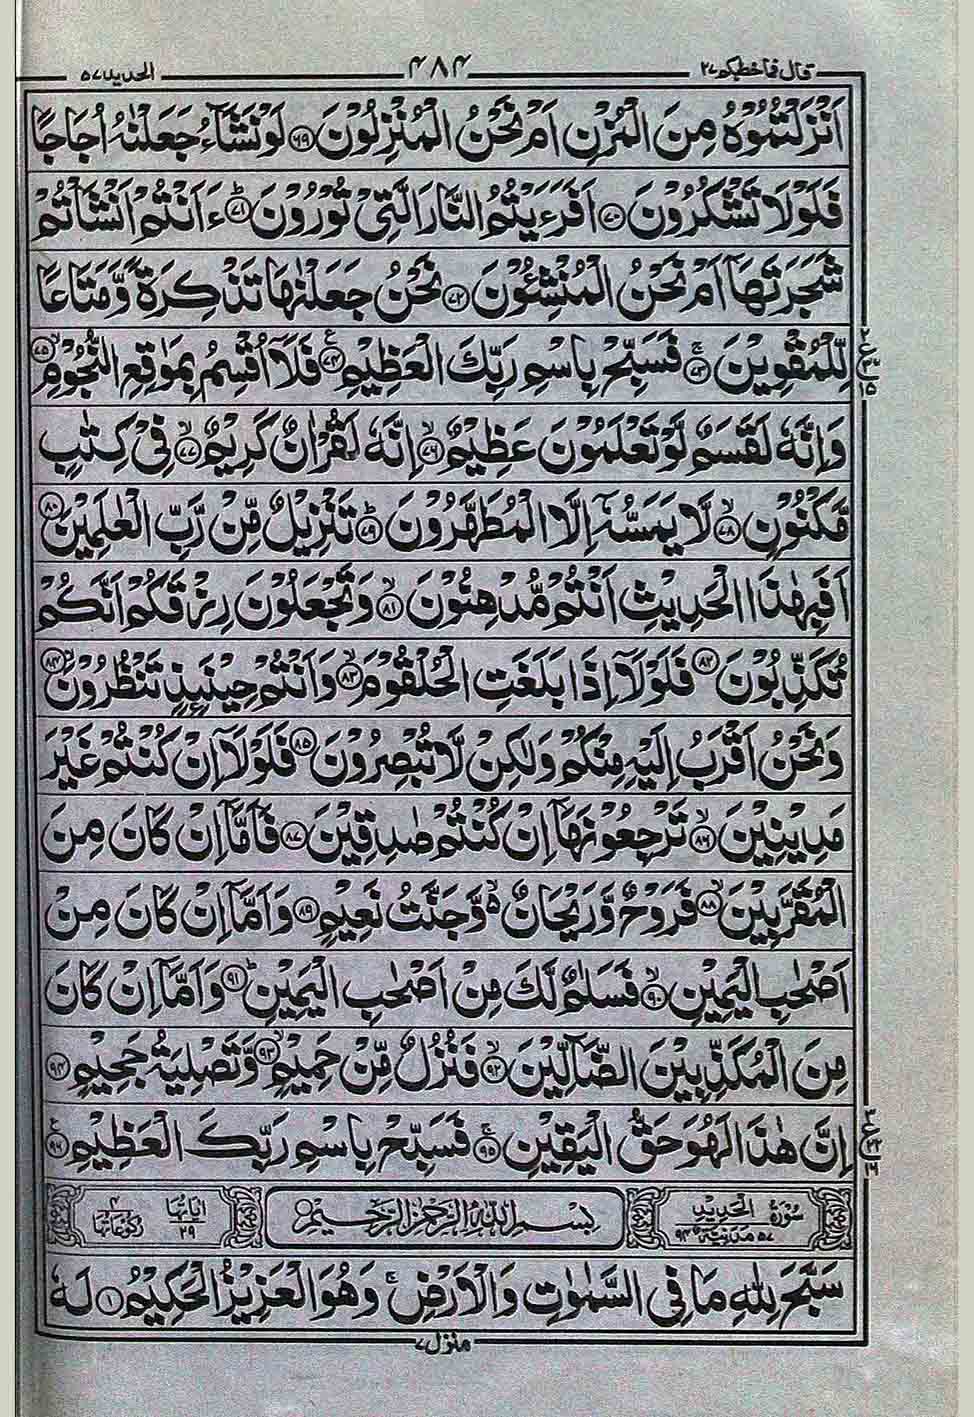 قال فما خطبكم ٢٧ ۴۸۴ الحدید ۵۷
اَنْزَلْتُمُوْهُ مِنَ الْمُزْنِ اَمْ نَحْنُ الْمُنْزِلُوْنَ ﴿۶۹﴾ لَوْ نَشَآءُ جَعَلْنٰهُ اُجَاجًا
فَلَوْلَا تَشْكُرُوْنَ ﴿۷۰﴾ اَفَرَءَيْتُمُ النَّارَ الَّتِيْ تُوْرُوْنَ ﴿۷۱﴾ؕ ءَاَنْتُمْ اَنْشَاْتُمْ
شَجَرَتَهَاۤ اَمْ نَحْنُ الْمُنْشِـُٔوْنَ ﴿۷۲﴾ نَحْنُ جَعَلْنٰهَا تَذْكِرَةً وَّمَتَاعًا
لِّلْمُقْوِيْنَ ﴿۷۳﴾ۚ فَسَبِّحْ بِاسْمِ رَبِّكَ الْعَظِيْمِ ﴿۷۴﴾ فَلَاۤ اُقْسِمُ بِمَوٰقِعِ النُّجُوْمِ ﴿۷۵﴾ۙ
وَاِنَّهٗ لَقَسَمٌ لَّوْ تَعْلَمُوْنَ عَظِيْمٌ ﴿۷۶﴾ۙ اِنَّهٗ لَقُرْاٰنٌ كَرِيْمٌ ﴿۷۷﴾ۙ فِيْ كِتٰبٍ
مَّكْنُوْنٍ ﴿۷۸﴾ۙ لَّا يَمَسُّهٗۤ اِلَّا الْمُطَهَّرُوْنَ ﴿۷۹﴾ؕ تَنْزِيْلٌ مِّنْ رَّبِّ الْعٰلَمِيْنَ ﴿۸۰﴾
اَفَبِهٰذَا الْحَدِيْثِ اَنْتُمْ مُّدْهِنُوْنَ ﴿۸۱﴾ۙ وَتَجْعَلُوْنَ رِزْقَكُمْ اَنَّكُمْ
تُكَذِّبُوْنَ ﴿۸۲﴾ فَلَوْلَاۤ اِذَا بَلَغَتِ الْحُلْقُوْمَ ﴿۸۳﴾ۙ وَاَنْتُمْ حِيْنَئِذٍ تَنْظُرُوْنَ ﴿۸۴﴾ۙ
وَنَحْنُ اَقْرَبُ اِلَيْهِ مِنْكُمْ وَلٰكِنْ لَّا تُبْصِرُوْنَ ﴿۸۵﴾ فَلَوْلَاۤ اِنْ كُنْتُمْ غَيْرَ
مَدِيْنِيْنَ ﴿۸۶﴾ۙ تَرْجِعُوْنَهَاۤ اِنْ كُنْتُمْ صٰدِقِيْنَ ﴿۸۷﴾ فَاَمَّاۤ اِنْ كَانَ مِنَ
الْمُقَرَّبِيْنَ ﴿۸۸﴾ۙ فَرَوْحٌ وَّرَيْحَانٌ ۙ۬ وَّجَنَّتُ نَعِيْمٍ ﴿۸۹﴾ وَاَمَّاۤ اِنْ كَانَ مِنْ
اَصْحٰبِ الْيَمِيْنِ ﴿۹۰﴾ۙ فَسَلٰمٌ لَّكَ مِنْ اَصْحٰبِ الْيَمِيْنِ ﴿۹۱﴾ؕ وَاَمَّاۤ اِنْ كَانَ
مِنَ الْمُكَذِّبِيْنَ الضَّآلِّيْنَ ﴿۹۲﴾ۙ فَنُزُلٌ مِّنْ حَمِيْمٍ ﴿۹۳﴾ۙ وَّتَصْلِيَةُ جَحِيْمٍ ﴿۹۴﴾
اِنَّ هٰذَا لَهُوَ حَقُّ الْيَقِيْنِ ﴿۹۵﴾ۚ فَسَبِّحْ بِاسْمِ رَبِّكَ الْعَظِيْمِ ﴿۹۶﴾
سُوْرَةُ الْحَدِيْدِ ۵۷ مَدَنِيَّةٌ ۹۴ بِسْمِ اللّٰهِ الرَّحْمٰنِ الرَّحِيْمِ اٰيَاتُهَا ۲۹ رُكُوْعَاتُهَا ۴
سَبَّحَ لِلّٰهِ مَا فِي السَّمٰوٰتِ وَالْاَرْضِ ۚ وَهُوَ الْعَزِيْزُ الْحَكِيْمُ ﴿۱﴾ لَهٗ
منزل ۷